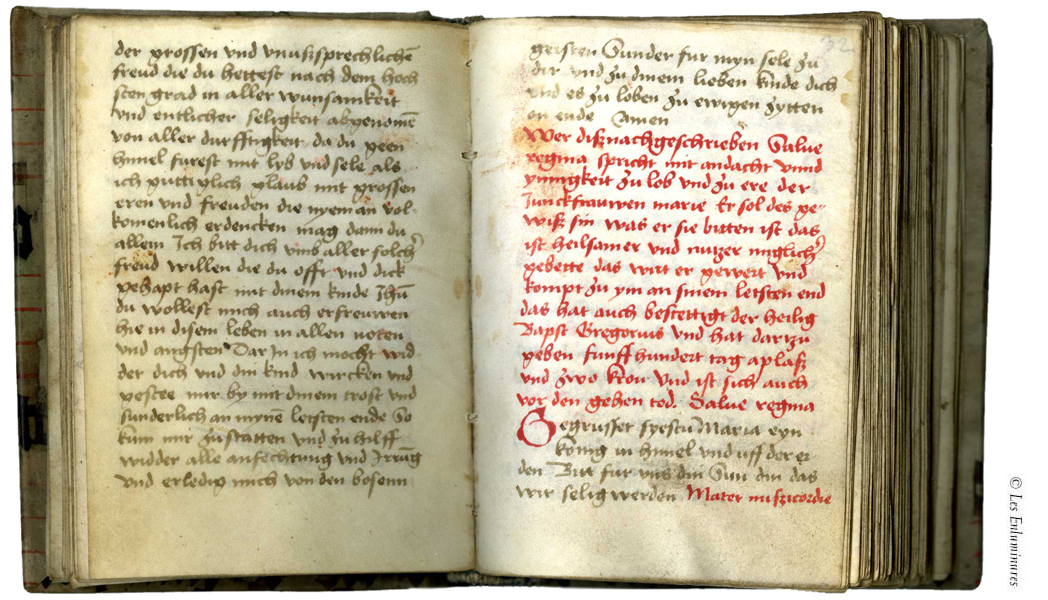 der grossen vnd vnussprechlichē
freud die du hettest nach dem hoch
sten grad in aller wunsamkeit
vnd entlicher seligkeit abgenomē
von aller durfftigkeit da du geen
himel furest mit lyb vnd sele als
ich gutti glich glaub mit grossen
eren vnd freuden die nyeman vol
komenlich erdencken mag dann du
allein Ich bitt dich vmb aller solch
freud willen die du offt vnd dick
gehapt hast mit dinem kinde Jhū
du wollest mich auch erfreuwen
hie in disem leben in allen noten
vnd angsten Dar In ich mocht wid
der dich vnd din kind wircken vnd
gestee mir by mit dinem trost vnd
sunderlich an mynē letsten ende So
kum mir zu statten vnd zu hilff
widder alle anfechtung vnd Irrūg
vnd erledig mich von den bosenn
32
geisten Sunder fur myn sele zu
dir vnd zu dinem lieben kinde dich
vnd es zu loben zu ewigen zytten
on ende Amen
Wer disznachgeschrieben Salue
regina spricht mit andacht vnnd
ynnigkeit zu lob vnd zu ere der
Junckfrauwen marie Er sol des ge-
wisz sin was er sie bitten ist das
ist heilsamer vnd nutzer miglich
gebette das wirt er gewert vnd
kompt zu ym an sinem letsten end
das hat auch bestettigt der heilig
Bapst Gregorius vnd hat darzu
geben funff hundert tag aplasz
vnd zwo kron Vnd ist sich auch
vor den gehen tod. Salue regina
Gegrusset syestu Maria eyn
konig in himel vnd uff der er
den Bit fur vns din Sun din das
wir selig werden Mater misericordie
© Les Enluminures